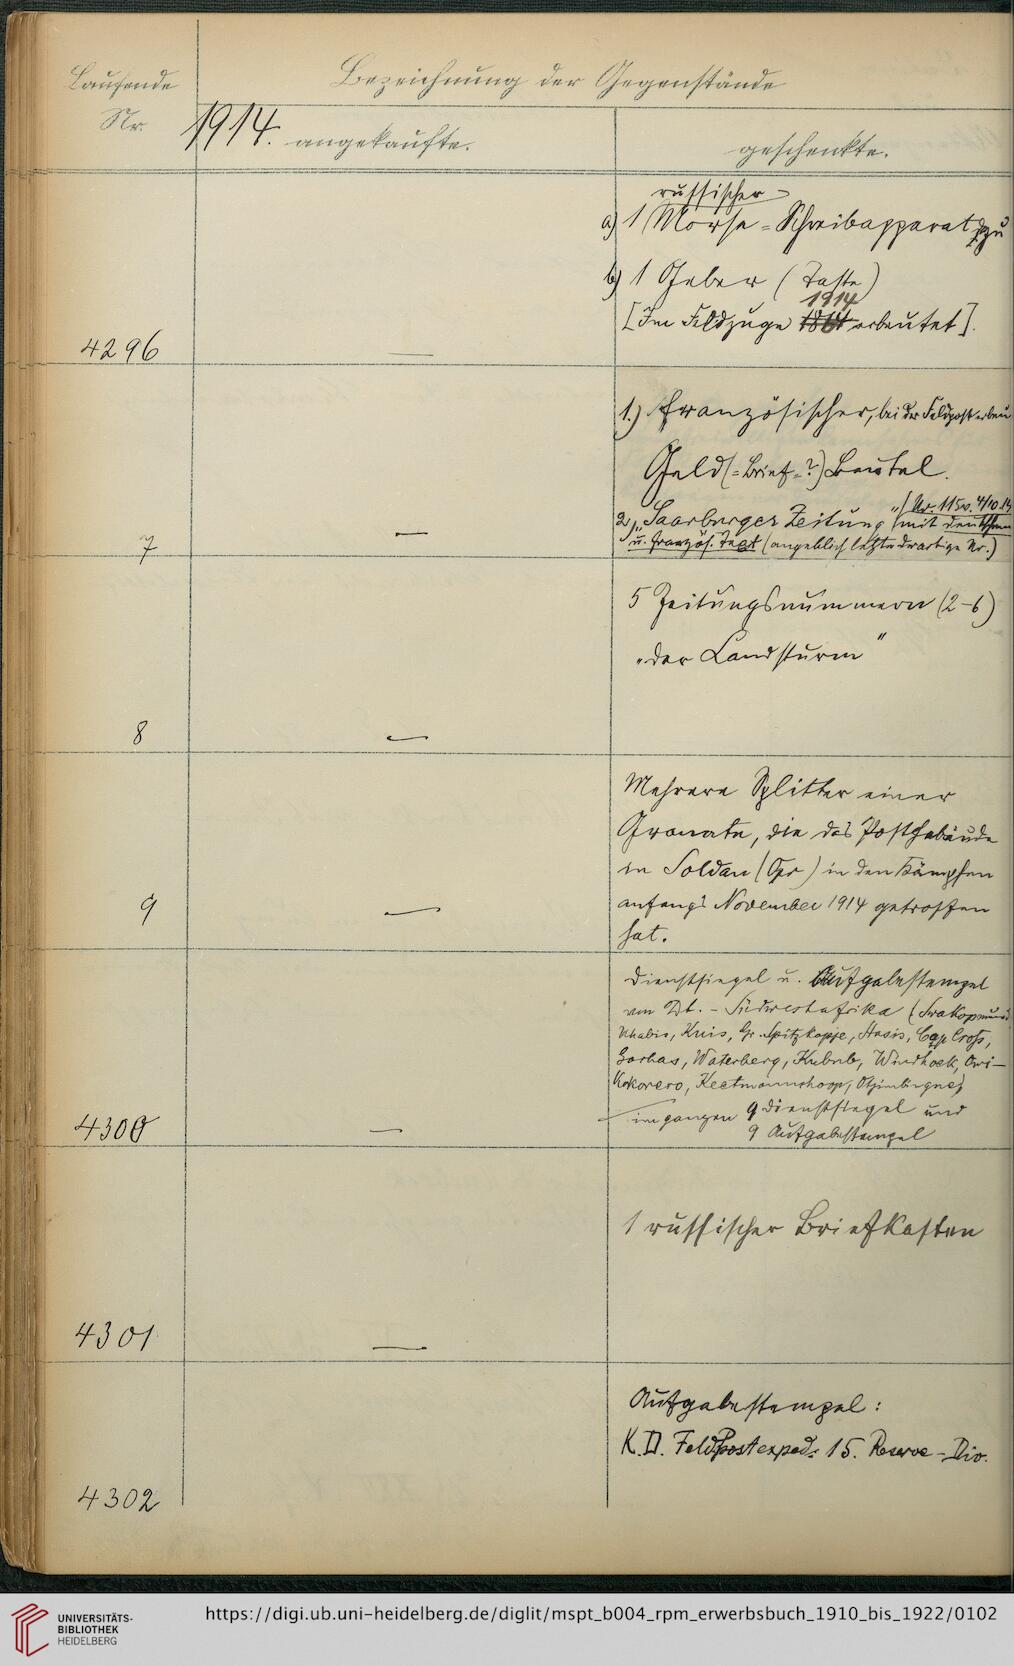 Laufende
Nr.
Bezeichnung der Gegenstände
1914. angekaufte.
geschenkte.
russischer
a) 1 Morse-Schreibapparat dzu
b) 1 Geber (Taste)
1914
[Im Feldzuge 1864 erbeutet].
4296 —
1.) französischer, bei der Feldpost erbeu
Geld(=Brief=?) Beutel.
2) „Saarburger Zeitung" (Nr. 115 v. 4/10.14
mit deutschem
u. französ. Text (angeblich letzte derartige Nr.)
7 —
5 Zeitungsnummern (2–6)
„der Landsturm"
8 —
Mehrere Splitter einer
Granate, die das Postgebäude
in Soldau (Opr) in den Kämpfen
anfangs November 1914 getroffen
hat.
9 —
Dienstsiegel u. Aufgabestempel
von Dt. - Südwestafrika (Swakopmund
Ukabis, Kuis, Gr. Spitzkopje, Hasis, Cap Cross,
Gorbas, Waterberg, Kubub, Windhoek, Owi-
kokorero, Keetmannshoop, Otjimbingue)
im ganzen 9 Dienstsiegel und
9 Aufgabestempel
4300 —
1 russischer Briefkasten
4301 —
Aufgabestempel:
K. D. Feldpostexped: 15. Reserve-Div.
4302
UNIVERSITÄTS-
BIBLIOTHEK
HEIDELBERG
https://digi.ub.uni-heidelberg.de/diglit/mspt_b004_rpm_erwerbsbuch_1910_bis_1922/0102